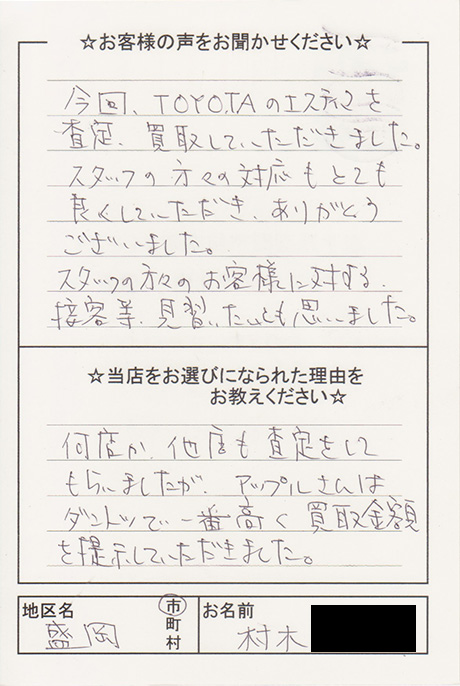 ☆お客様の声をお聞かせください☆
今回、TOYOTAのエスティマを
査定、買取していただきました。
スタッフの方々の対応もとても
良くしていただき、ありがとう
ございました。
スタッフの方々のお客様に対する、
接客等、見習いたいとも思いました。
☆当店をお選びになられた理由を
お教えください☆
何店か、他店も査定をして
もらいましたが、アップルさんは
ダントツで一番高く買取金額
を提示していただきました。
地区名 市町村 お名前
盛岡 村木